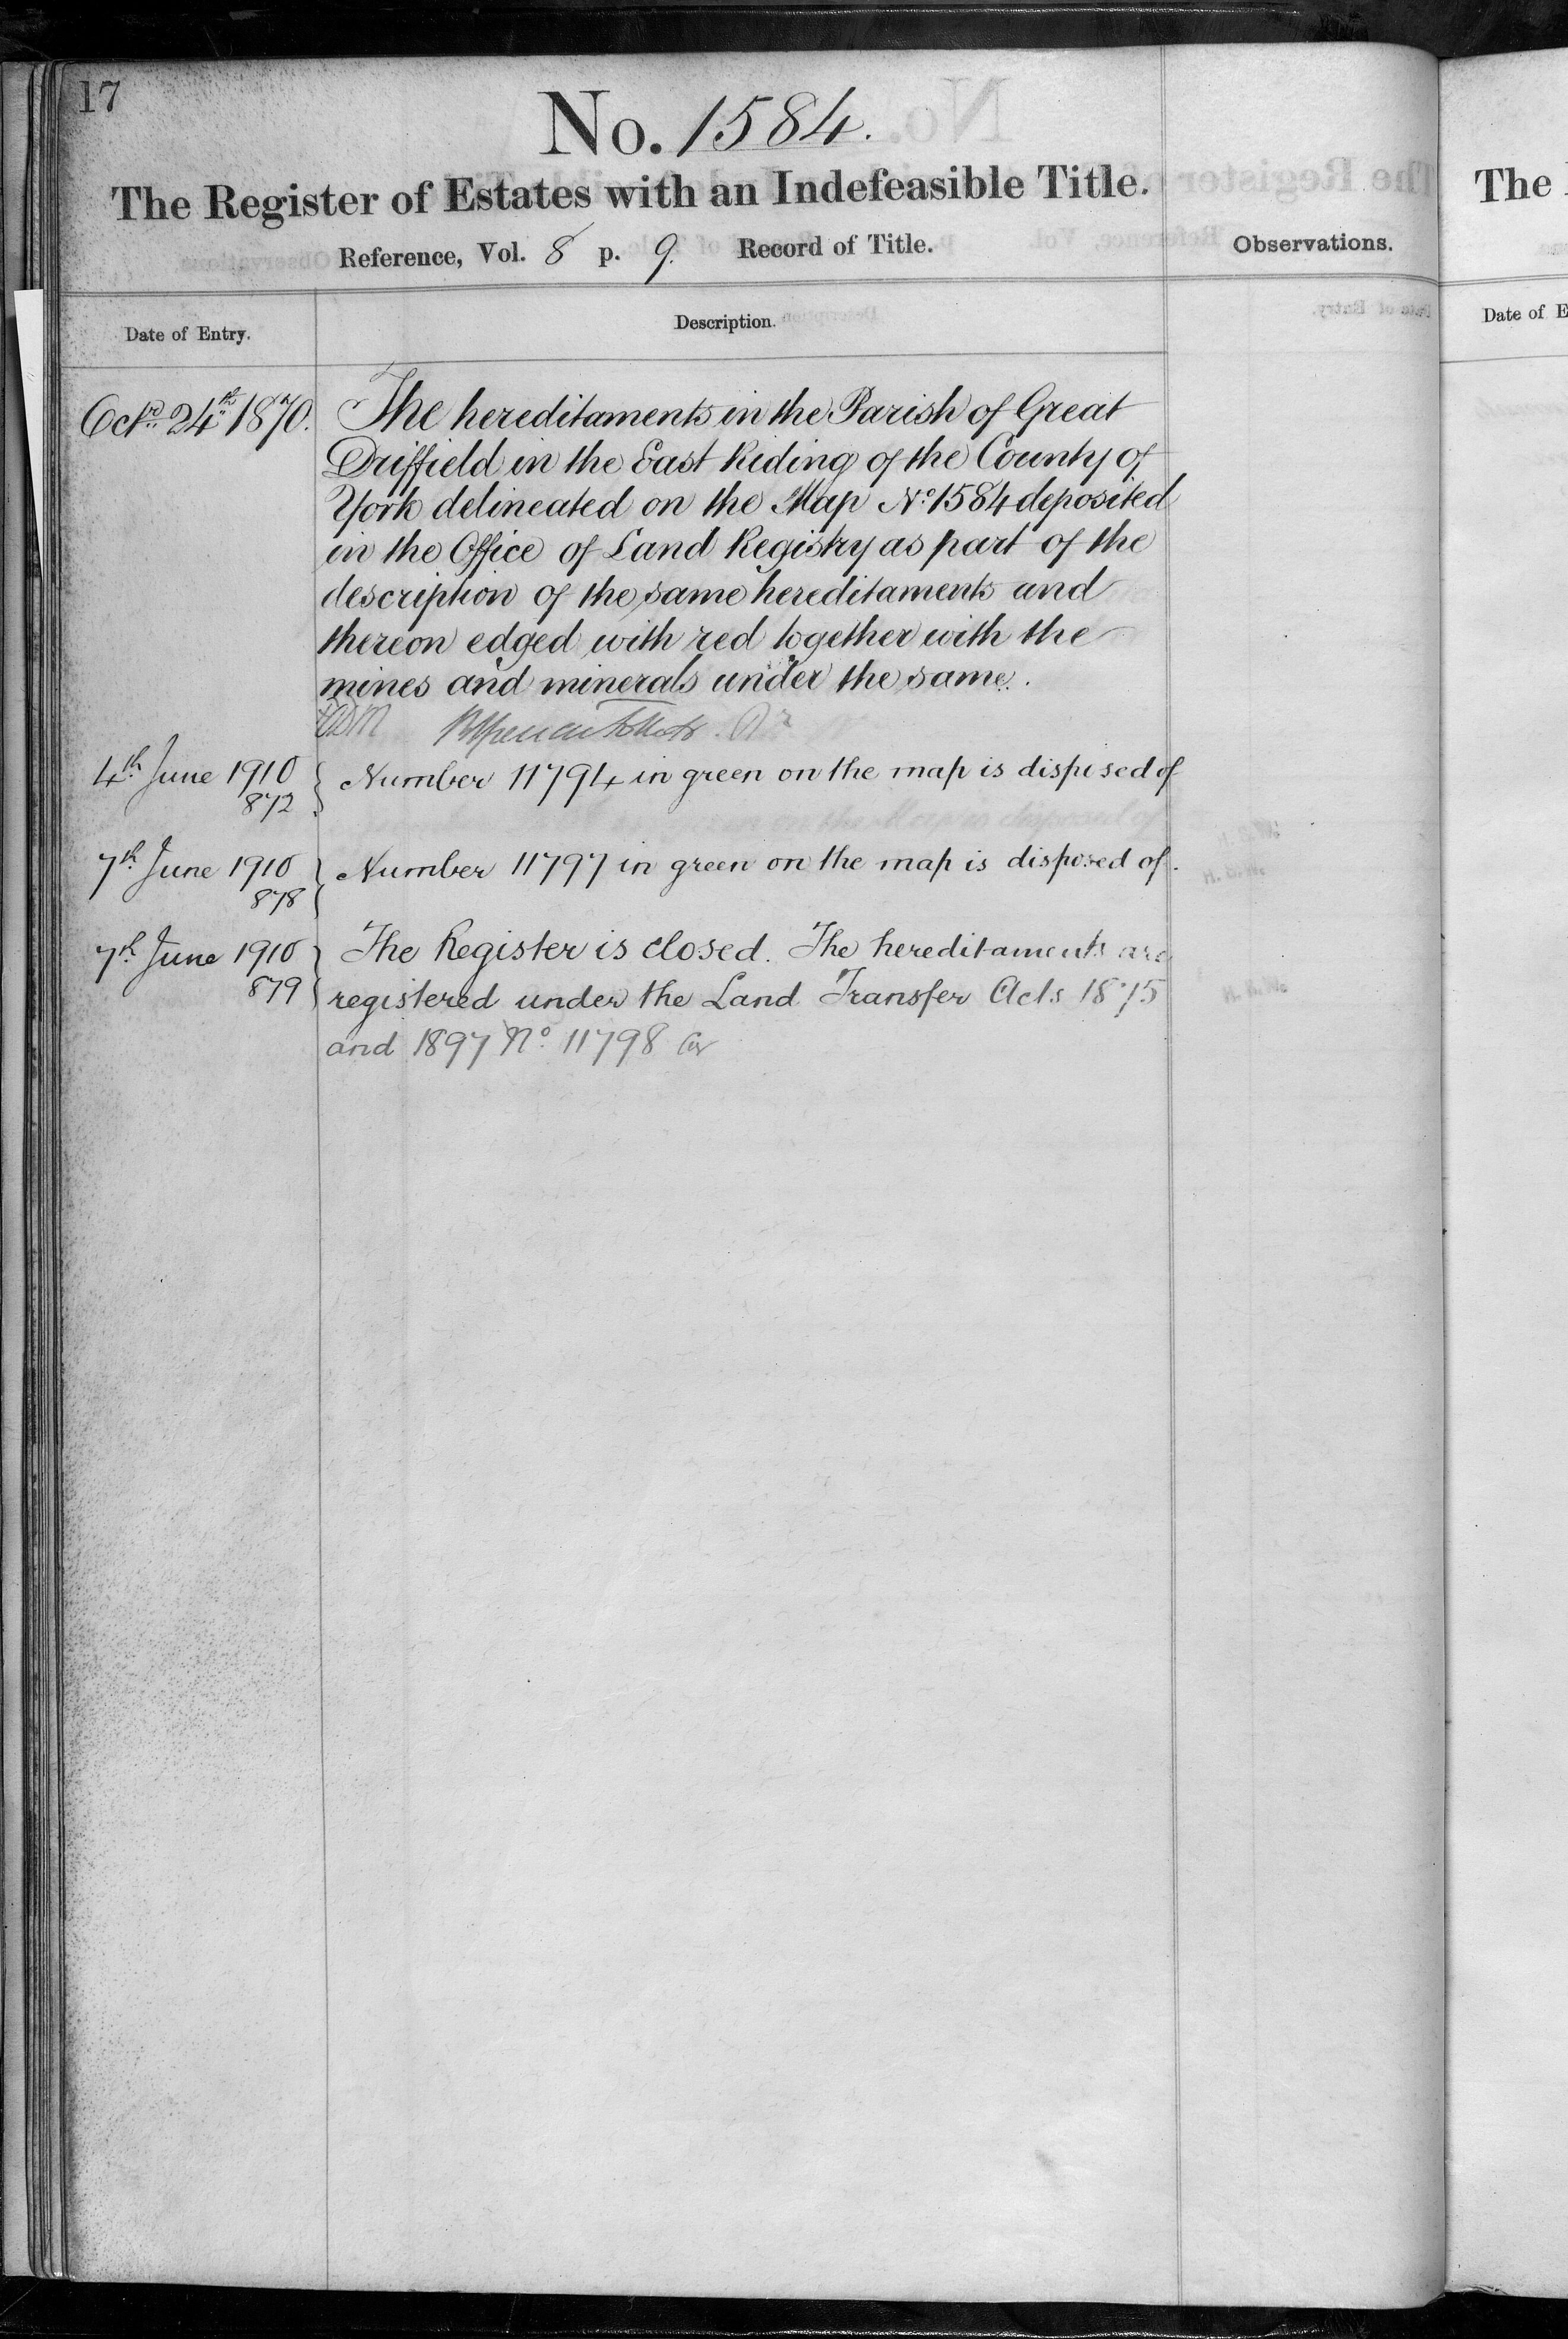 17
No. 1584.
The Register of Estates with an Indefeasible Title.
Reference, Vol. 8 p. 9. Record of Title.
Observations.
Date of Entry.
Description.
Octr. 24th 1870. The hereditaments in the Parish of Great
Driffield in the East Riding of the County of
York delineated on the Map No. 1584 deposited
in the Office of Land Registry as part of the
description of the same hereditaments and
thereon edged with red together with the
mines and minerals under the same.
4th June 1910 Number 11794 in green on the map is disposed of
872
7th June 1910 Number 11797 in green on the map is disposed of.
878
7th June 1910 The Register is closed. The hereditaments are
879 registered under the Land Transfer Acts 1875
and 1897 No. 11798
The
Date of E